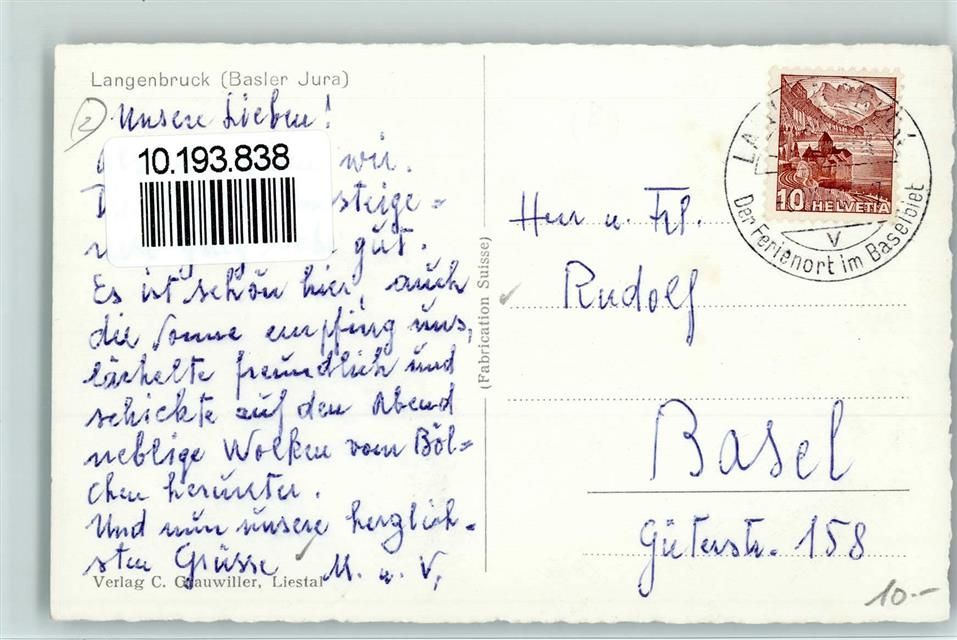 Langenbruck (Basler Jura)
2
Unsere Lieben!
10.193.838
wir.
steige=
gut.
Es ist schön hier, auch
die Sonne empfing uns,
lächelte freundlich und
schickte auf den Abend
neblige Wolken vom Böl=
chen herunter.
Und nun unsere herzlich=
sten Grüsse M. u. V.
Verlag C. Grauwiller, Liestal
(Fabrication Suisse)
10 HELVETIA
Der Ferienort im Baselbiet
V
Herr u. Frl.
Rudolf
Basel
Güterstr. 158
10.-